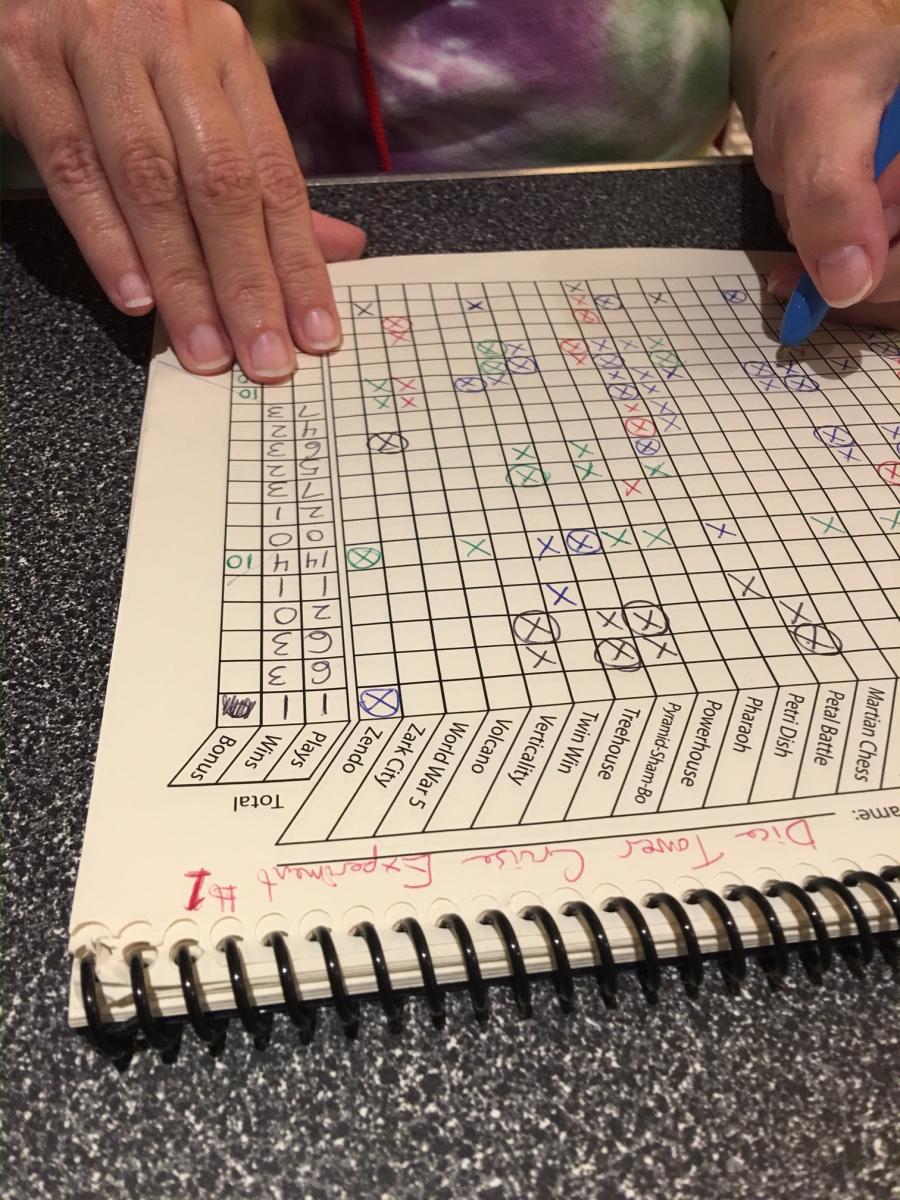 ame: Dice Tower Cruise Experiment #1
Total
Martian Chess
Petal Battle
Petri Dish
Pharaoh
Powerhouse
Pyramid-Sham-Bo
Treehouse
Twin Win
Verticality
Volcano
World War 5
Zark City
Zendo
Plays
Wins
Bonus
1 1
6 3
6 3
2 0
1 1
14 4 10
0 0
2 1
7 3
5 2
6 3
4 2
7 3
10